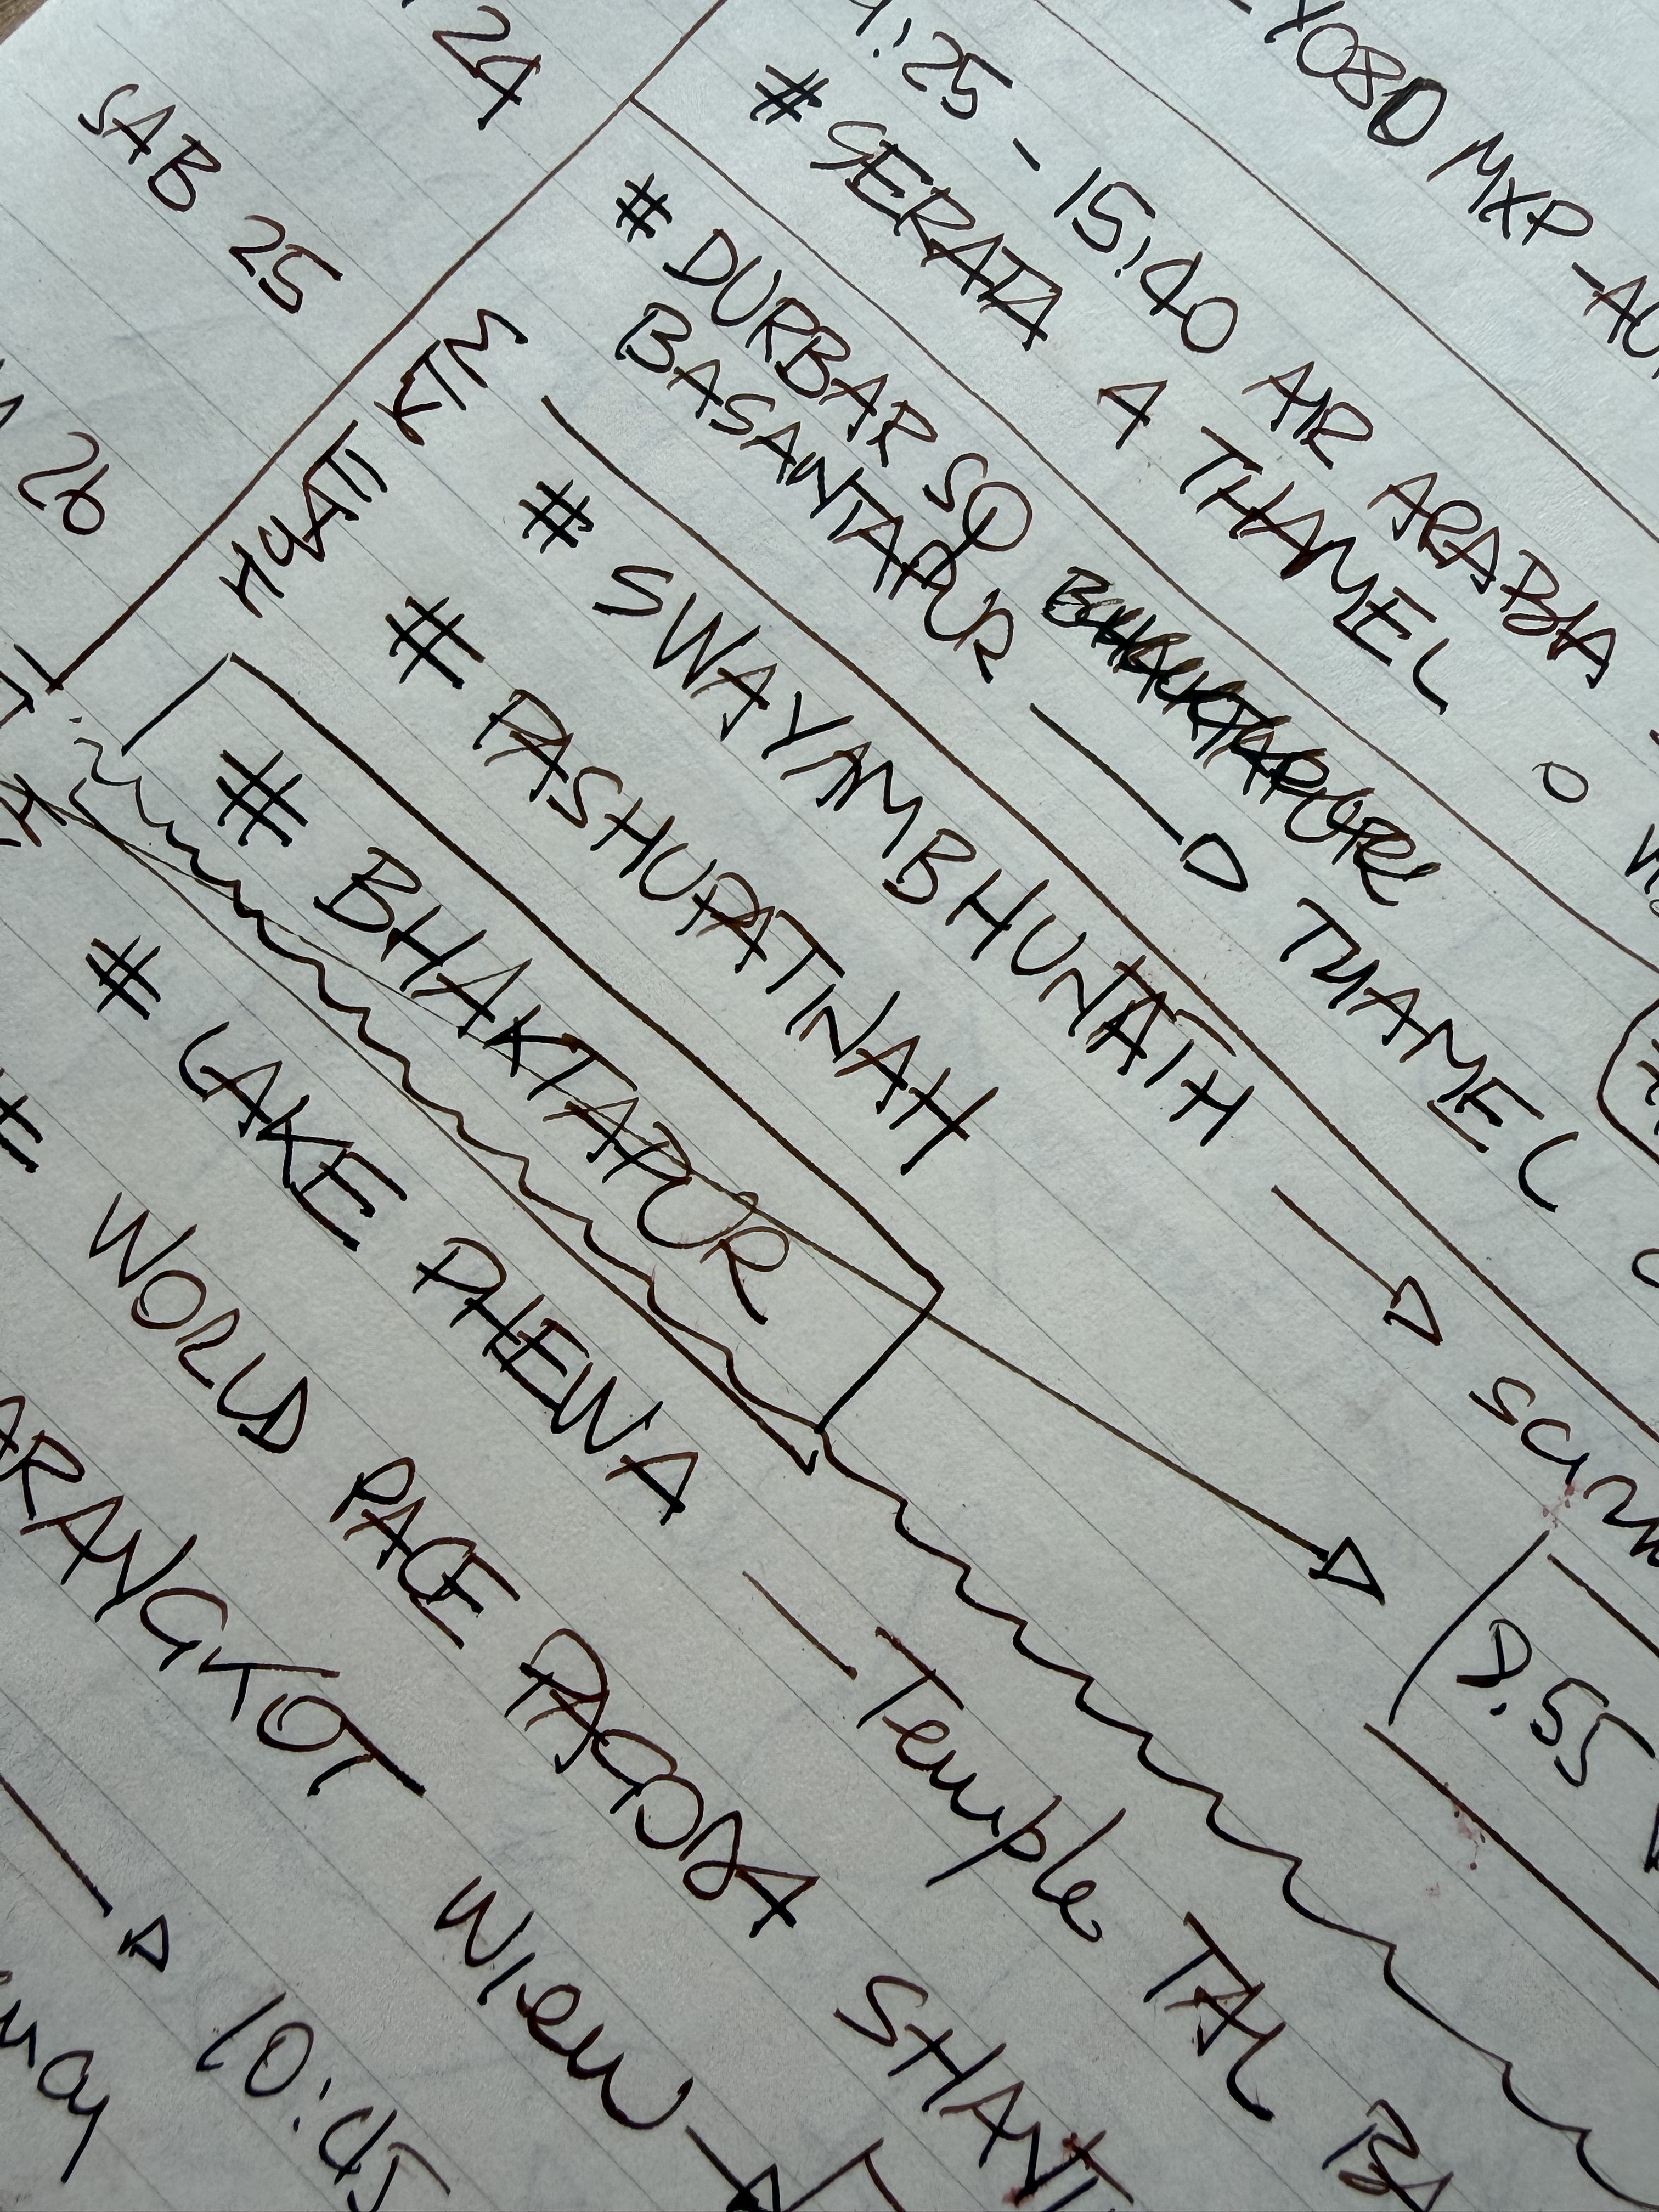 Y080 MXP - AU
24
:25 - 15:40 AIR ARABIA
# SERATA A THAMEL
SAB 25
# DURBAR SQ
BASANTAPUR → THAMEL
HYATT KTM
# SWAYAMBHUNATH →
26
# PASHUPATINAH
# BHAKTAPUR
8.55
# LAKE PHEWA - Temple TAL BA
# WORLD PACE PAGODA SHANT
RANGKOT WIEW →
→ 10:45